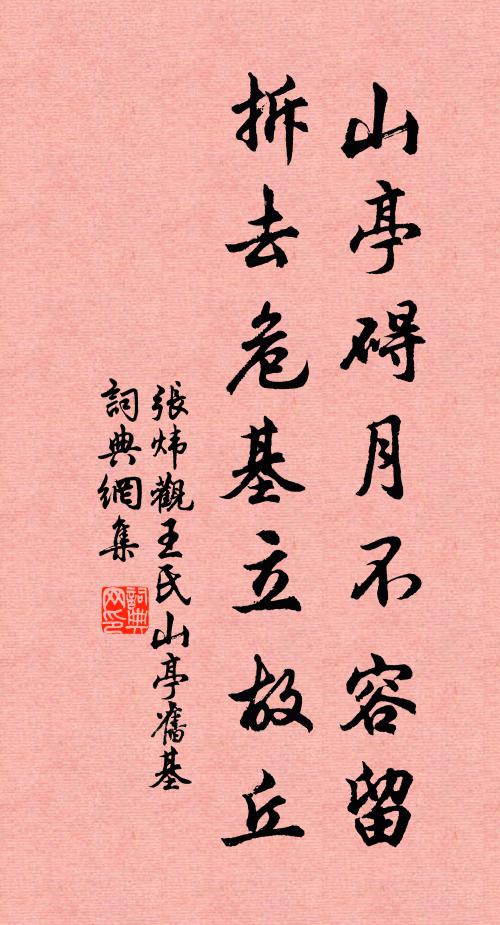 山亭碍月不容留
拆去危基立故丘
張炜觀王氏山亭舊基
詞典網集
詞典
网印